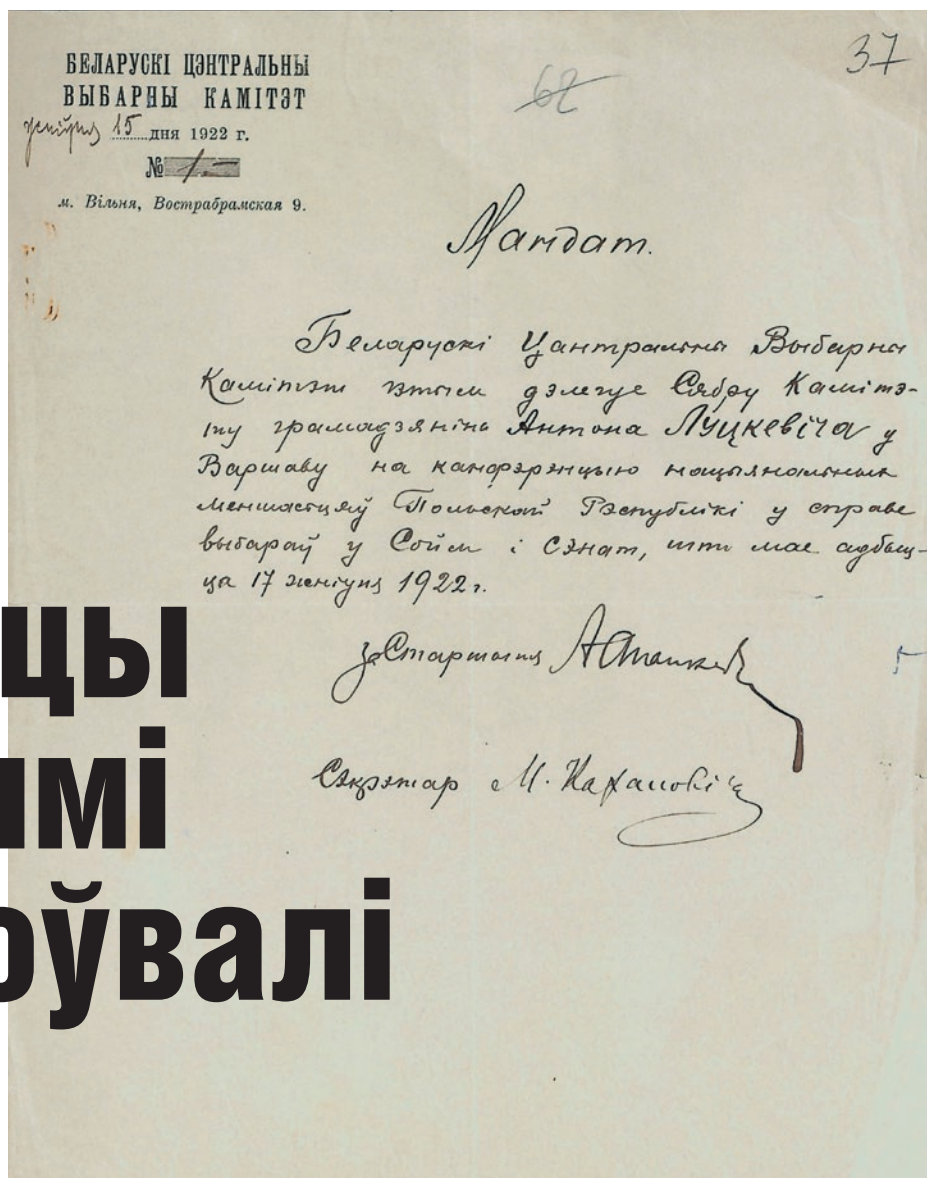 БЕЛАРУСКІ ЦЭНТРАЛЬНЫ
ВЫБАРНЫ КАМІТЭТ
жніўня 15 дня 1922 г.
№ 1.-
м. Вільня, Вострабрамская 9.
62
37
Мандат.
Беларускі Цэнтральны Выбарны
Камітэт гэтым дэлегуе Сябру Камітэ-
ту грамадзяніна Антона Луцкевіча у
Варшаву на канфэрэнцыю нацыянальных
меншасцяў Польскай Рэспублікі у справе
выбараў у Сойм і Сэнат, што мае адбыц-
ца 17 жніўня 1922 г.
Старшыня
Сэкрэтар М. Кахановіч
цы
імі
оўвалі